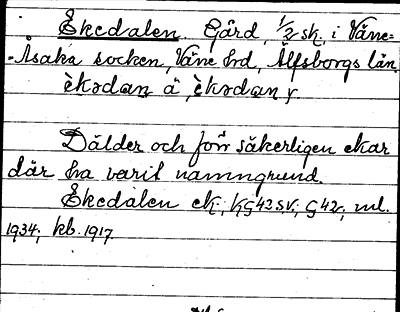 Ekedalen. Gård, 1/2 sk, i Väne-
-Åsaka socken, Väne hrd, Älfsborgs län.
èkədan å, èkədan y.
Dälder och förr säkerligen ekar
där ha varit namngrund.
Ekedalen ek; hG42SV; G42; ml.
1934; kb. 1917.